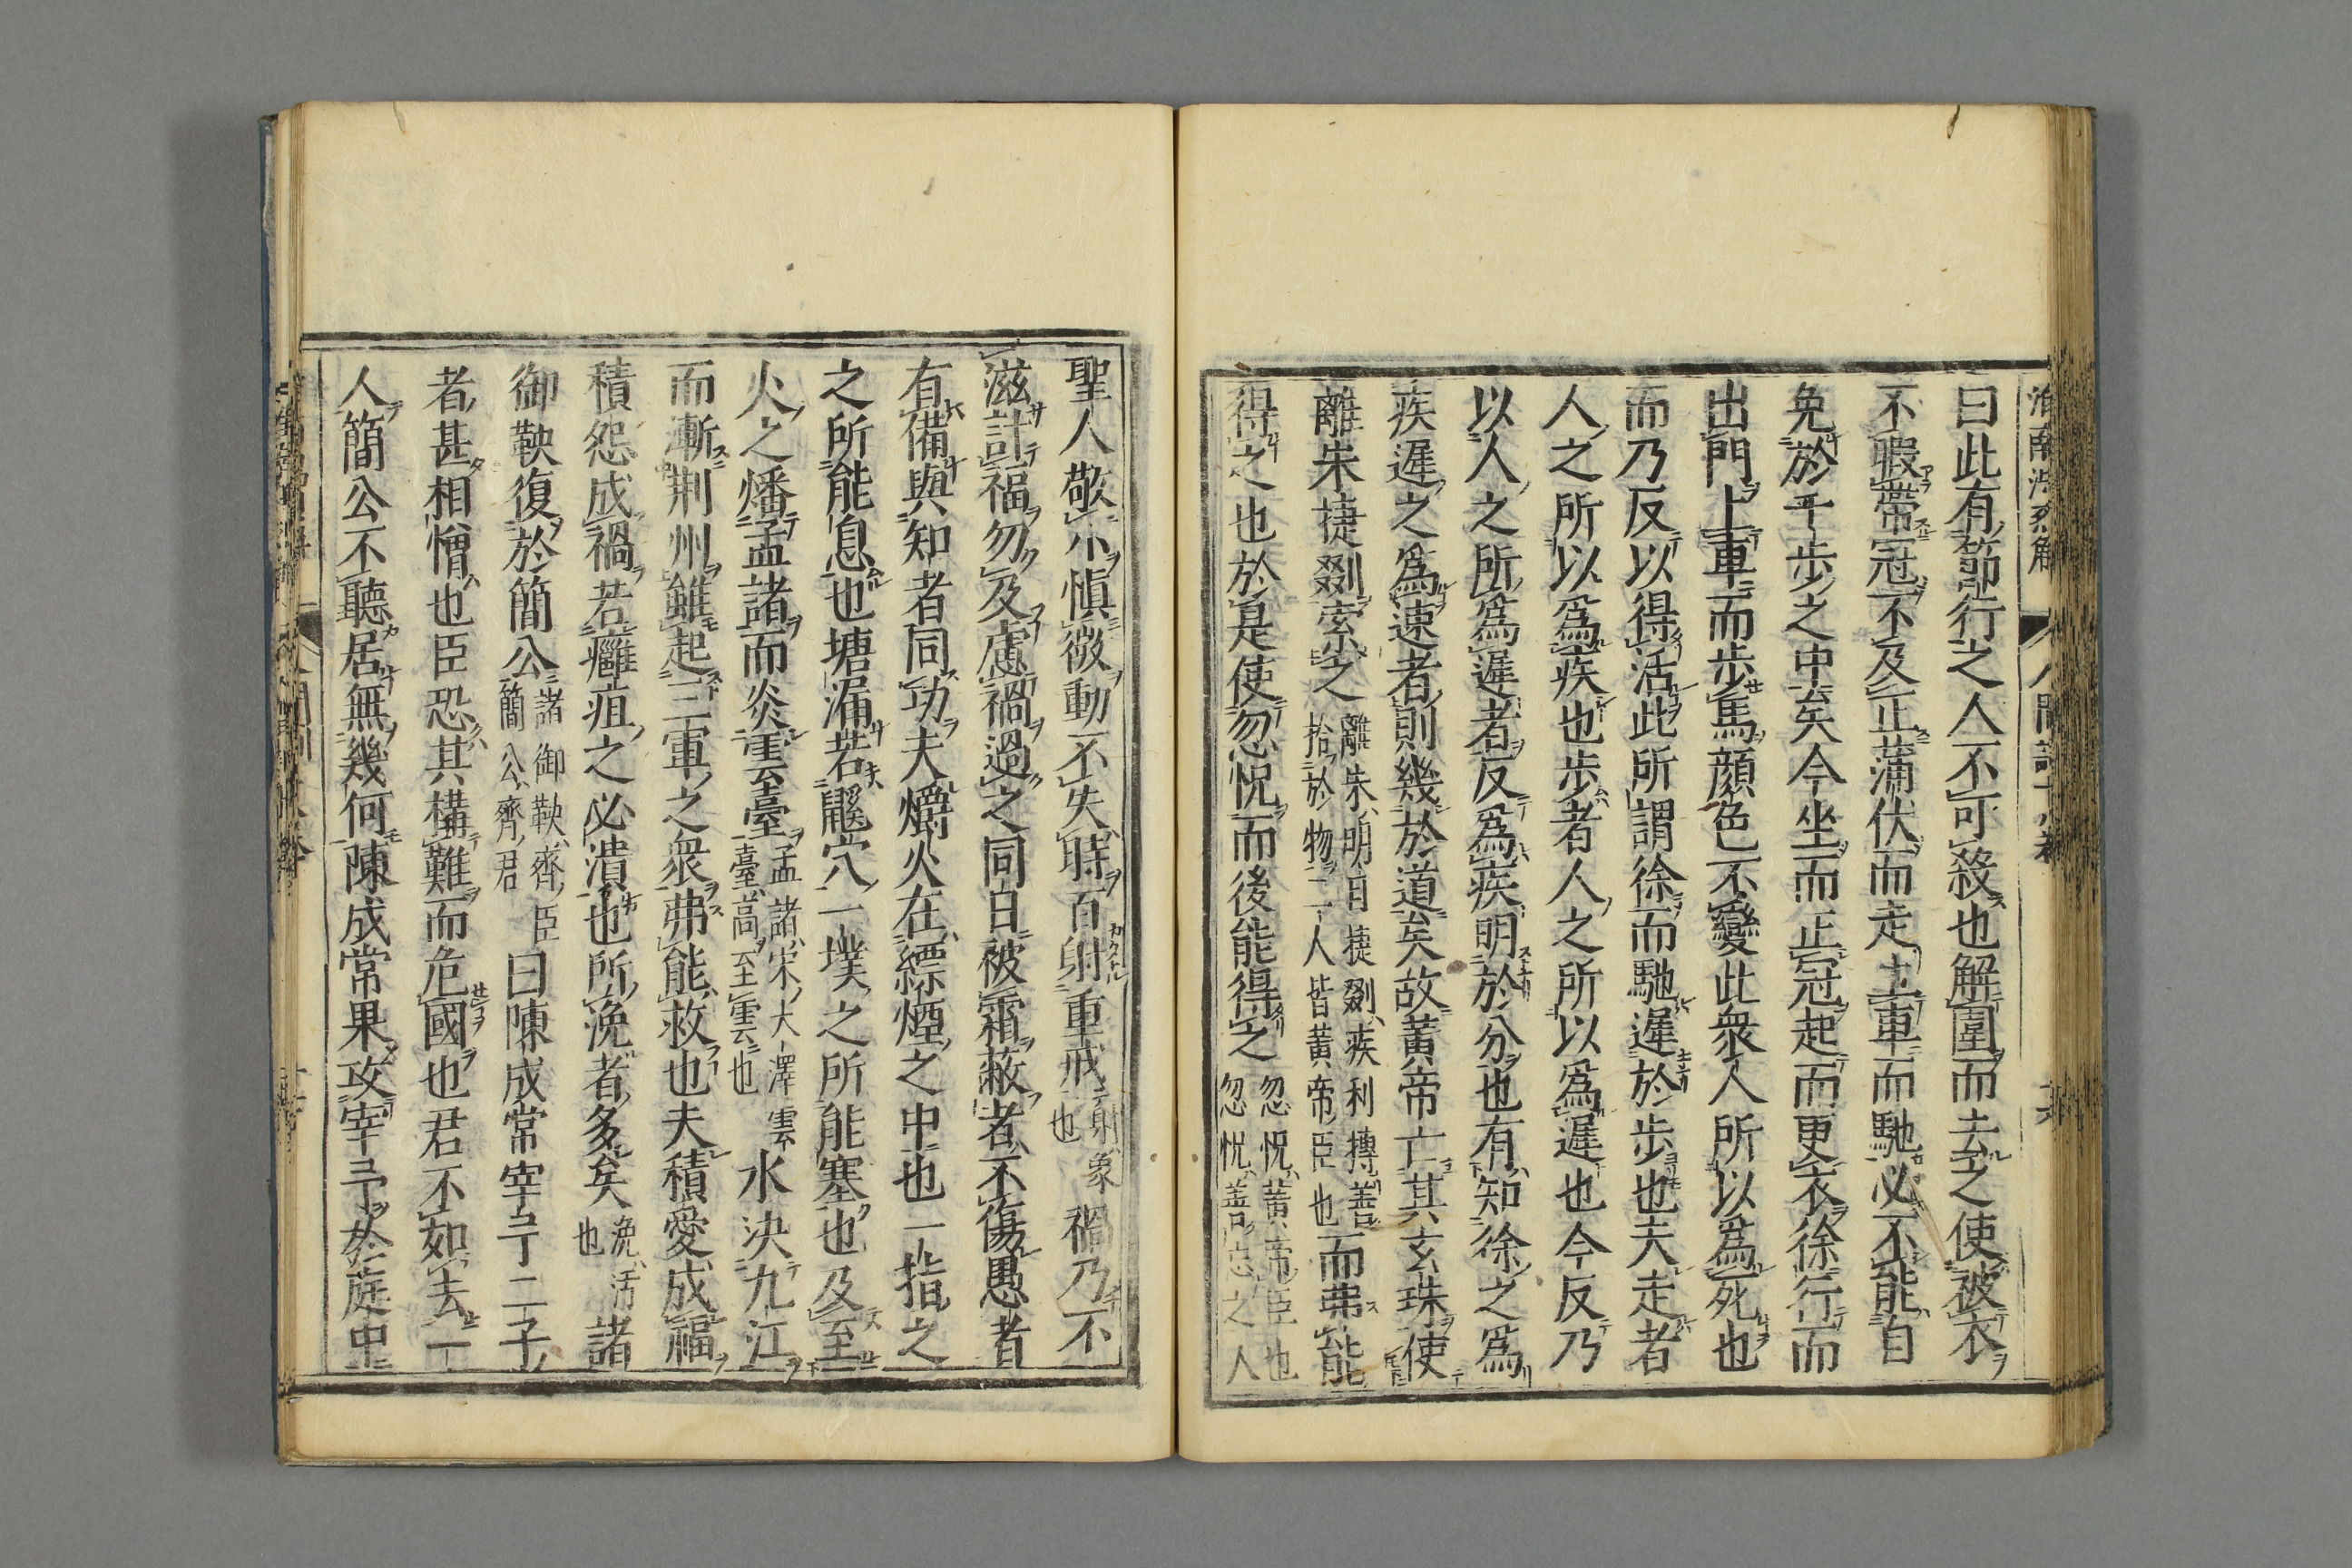 淮南鴻烈解 人間訓十八卷 十六
曰此有節行之人不可殺也解圍而去之使被衣
不暇帶冠不及正蒲伏而走上車而馳必不能自
免於千步之中矣今坐而正冠起而更衣徐行而
出門上車而步馬顏色不變此衆人所以爲死也
而乃反以得活此所謂徐而馳遲於步也夫走者
人之所以爲疾也步者人之所以爲遲也今反乃
以人之所爲遲者反爲疾明於分也有知徐之爲
疾遲之爲速者則幾於道矣故黃帝亡其玄珠使
離朱捷剟索之離朱明目捷剟疾利搏善
拾於物二人皆黃帝臣也而弗能
得之也於是使忽怳而後能得之忽怳黃帝臣也
忽怳善忘之人
聖人敬小愼微動不失時百射重戒射象
也禍乃不
滋計福勿及慮禍過之同日被霜蔽者不傷愚者
有備與知者同功夫爝火在縹煙之中也一指之
所能息也塘漏若鼷穴一墣之所能塞也及至
火之燔孟諸而炎雲臺孟諸宋大澤雲
臺高至雲也水決九江
而漸荆州雖起三軍之衆弗能救也夫積愛成福
積怨成禍若癰疽之必潰也所浼者多矣浼汚
也諸
御鞅復於簡公諸御鞅齊臣
簡公齊君曰陳成常宰予二子
者甚相憎也臣恐其構難而危國也君不如去一
人簡公不聽居無幾何陳成常果攻宰予於庭中